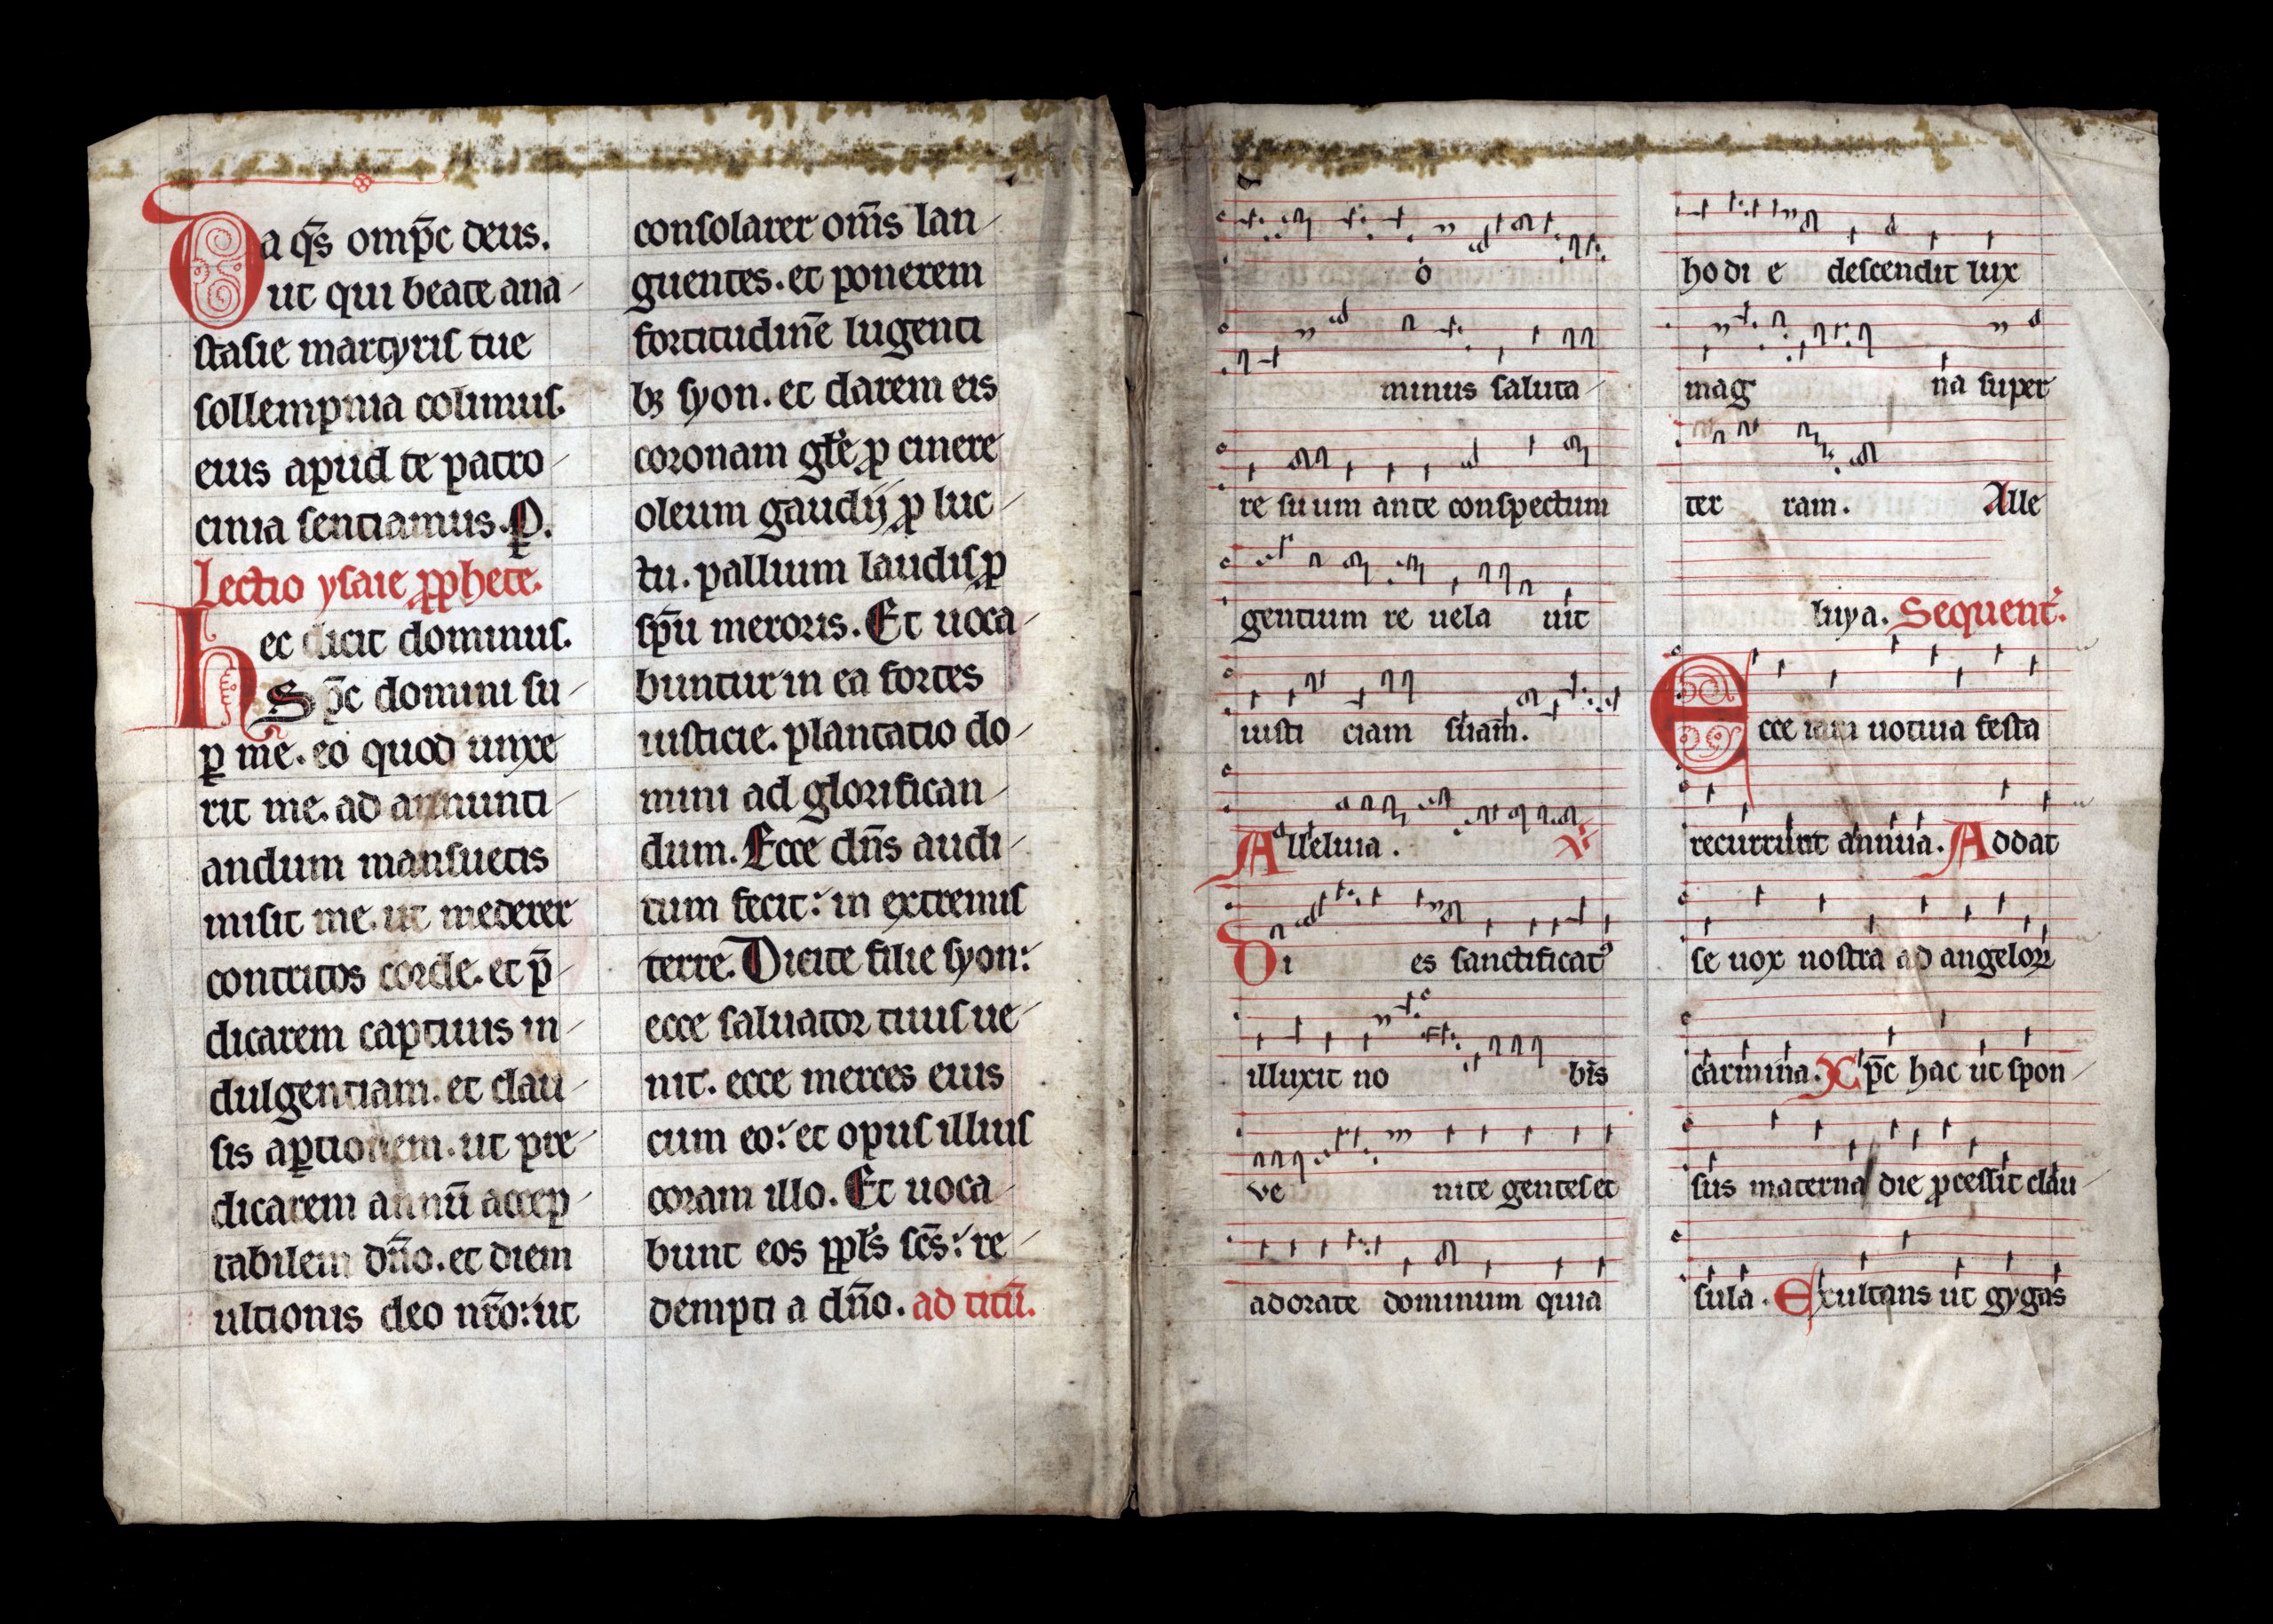 Da q̄s omp̄c deus.
ut qui beate ana-
stasie martyris tue
sollempnia colimus.
eius apud te patro-
cinia sentiamus. P.
Lectio ysaie ꝓphete.
hec dicit dominus.
Sp̄c domini su-
ꝑ me. eo quod unxe
rit me. ad annunti-
andum mansuetis
misit me. ut mederer
contritos corde. et p̄-
dicarem captiuis in-
dulgentiam. et clau-
sis aꝑtionem. ut pre-
dicarem annū accep-
tabilem dn̄o. et diem
ultionis deo nr̄o: ut
consolarer om̄s lan-
guentes. et ponerem
fortitudinē lugenti
bꝫ syon. et darem eis
coronam gl̄e ꝓ cinere
oleum gaudij ꝓ luc-
tu. pallium laudis ꝓ
sp̄u meroris. Et uoca-
buntur in ea fortes
iusticie. plantatio do-
mini ad glorifican-
dum. Ecce dn̄s audi-
tum fecit: in extremis
terre. Dicite filie syon:
ecce saluator tuus ue-
nit. ecce merces eius
cum eo: et opus illius
coram illo. Et uoca-
bunt eos ppl̄s sc̄s: re-
dempti a dn̄o. ad titū.
o
minus saluta-
re suum ante conspectum
gentium re uela uit
iusti ciam suam.
Alleluia. V.
Di es sanctificat᾽
illuxit no bis
ve nite gentes et
adorate dominum quia
hodi e descendit lux
mag na super
ter ram. Alle
luya. Sequent᾽.
Ecce iam uotiua festa
recurrunt annua. Addat
se uox nostra ad angeloꝝ
carmina. Xp̄c hac ut spon-
sus materna die ꝓcessit clau-
sula. Exultans ut gygas